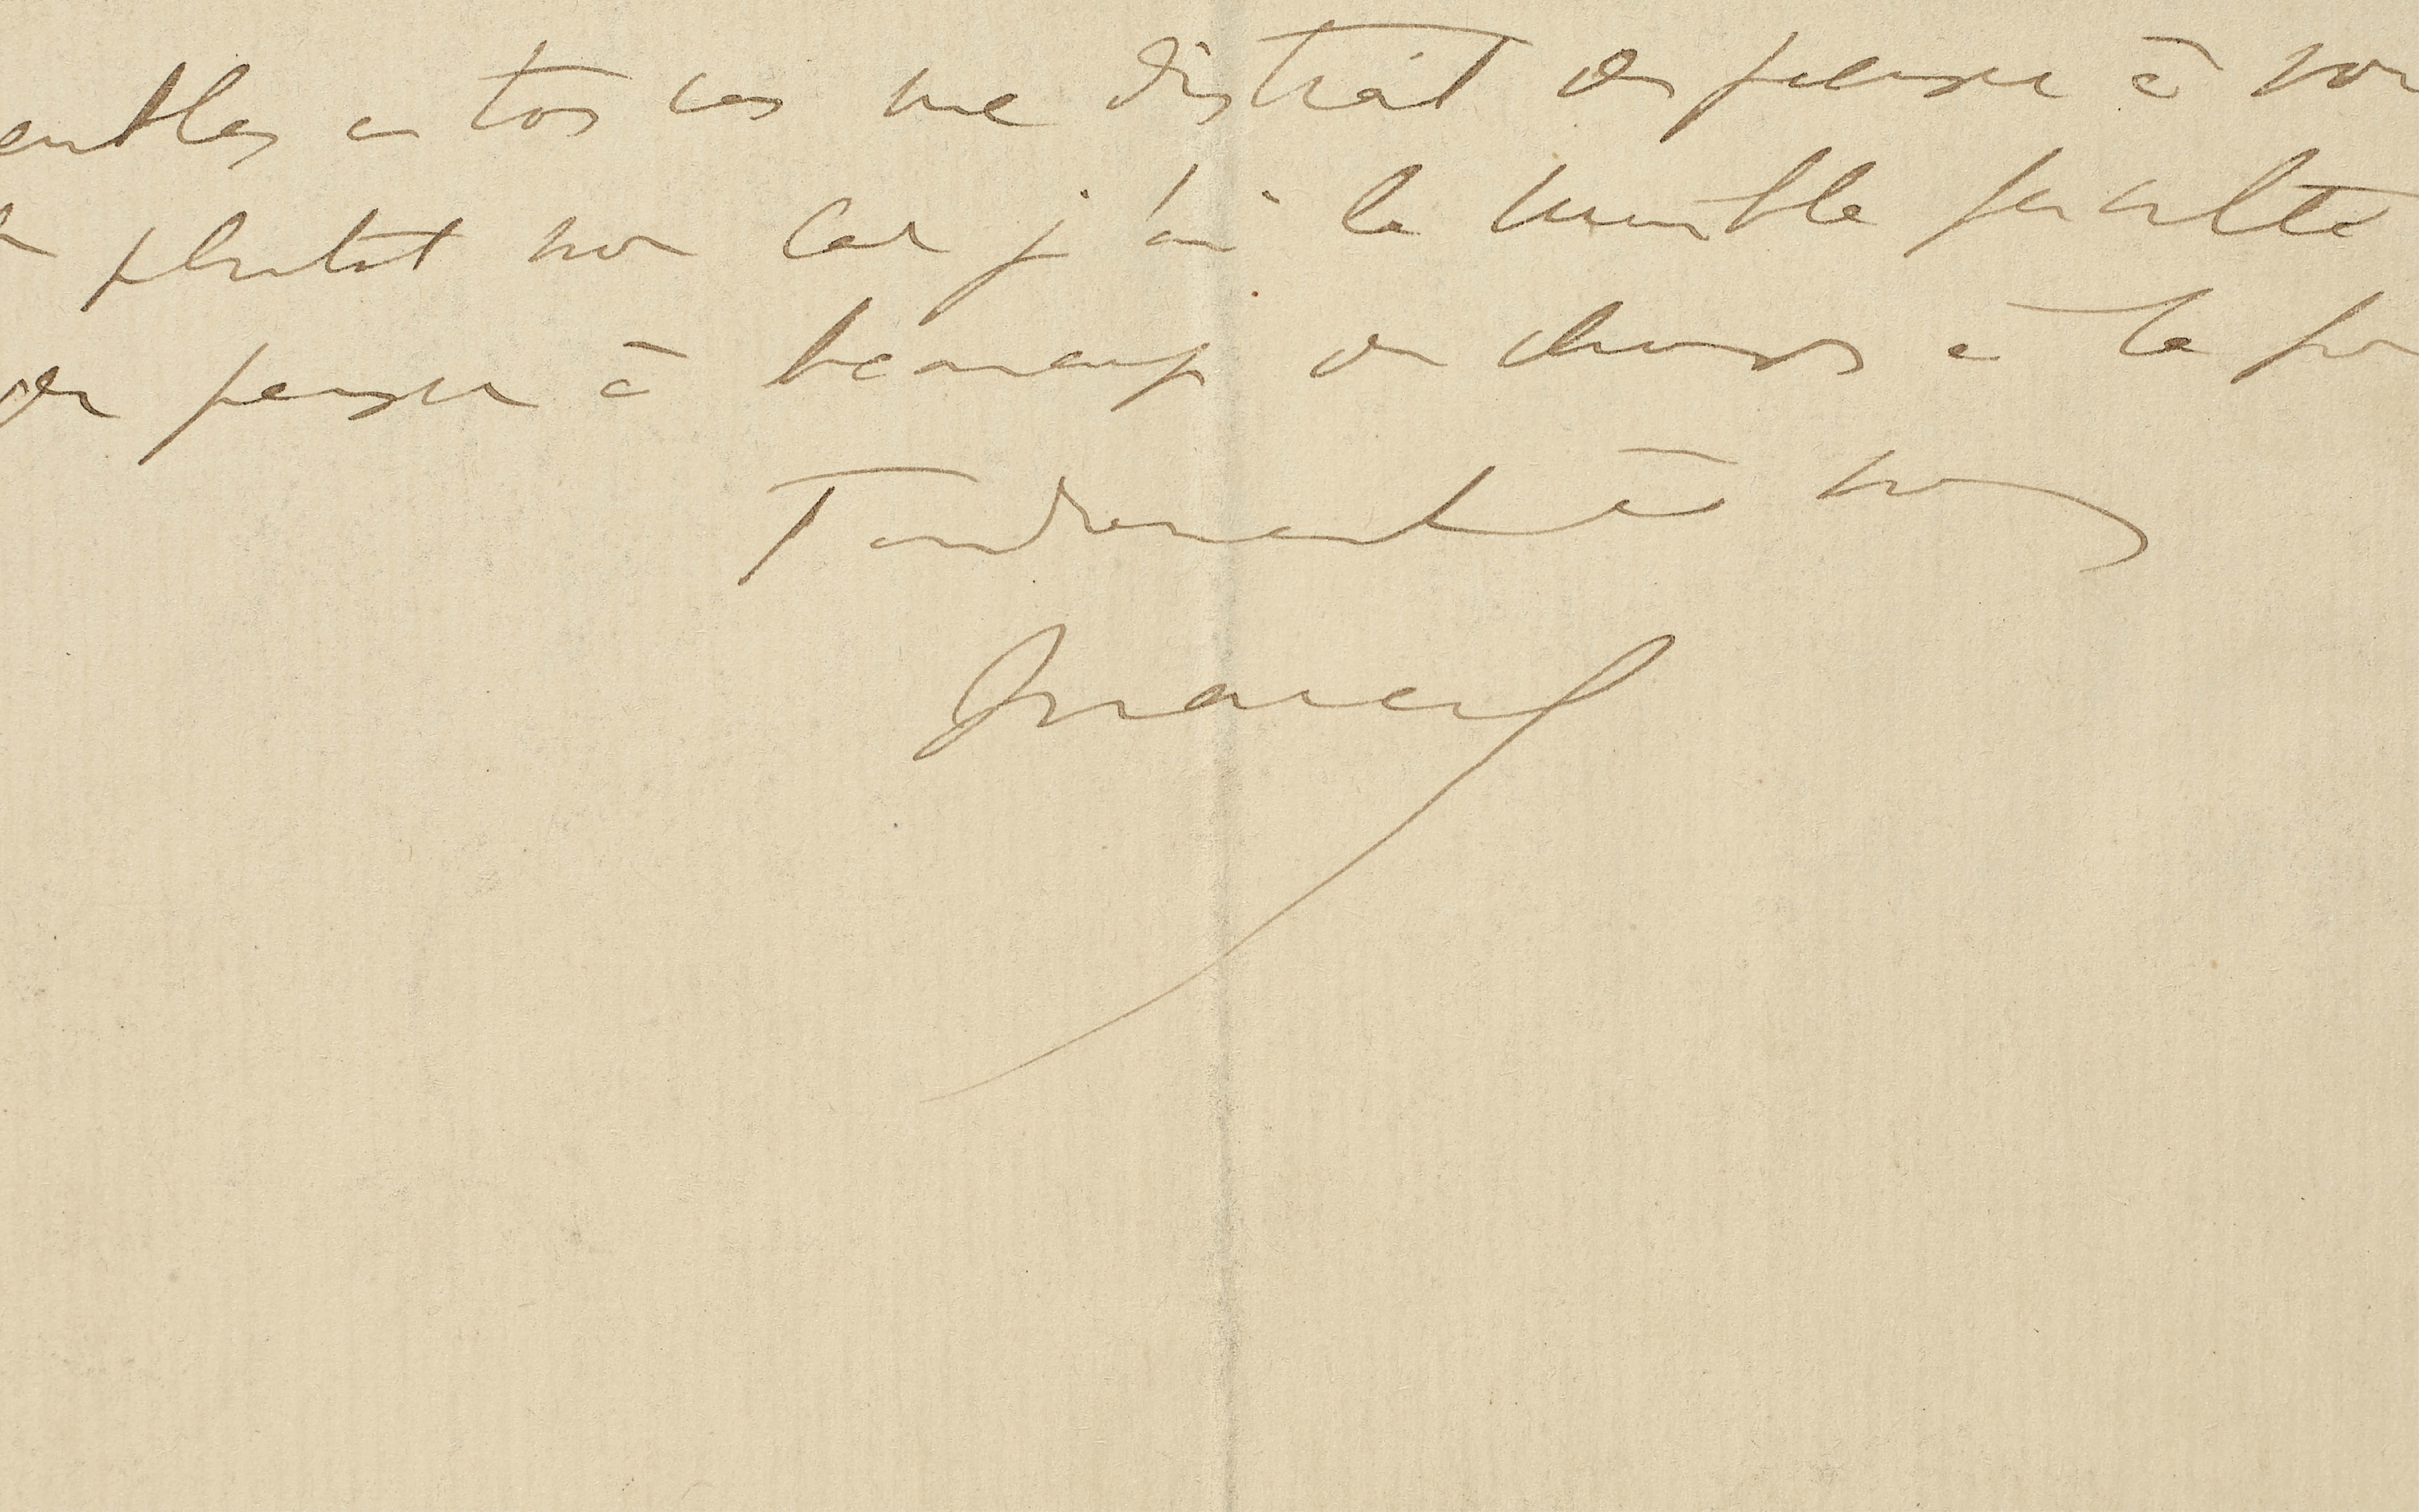 en tos cas me distrait de penser à vou
plutot non car j'ai la humble faculté
de penser à beaucoup de choses à la fo
Tendrement à vous
Marcel